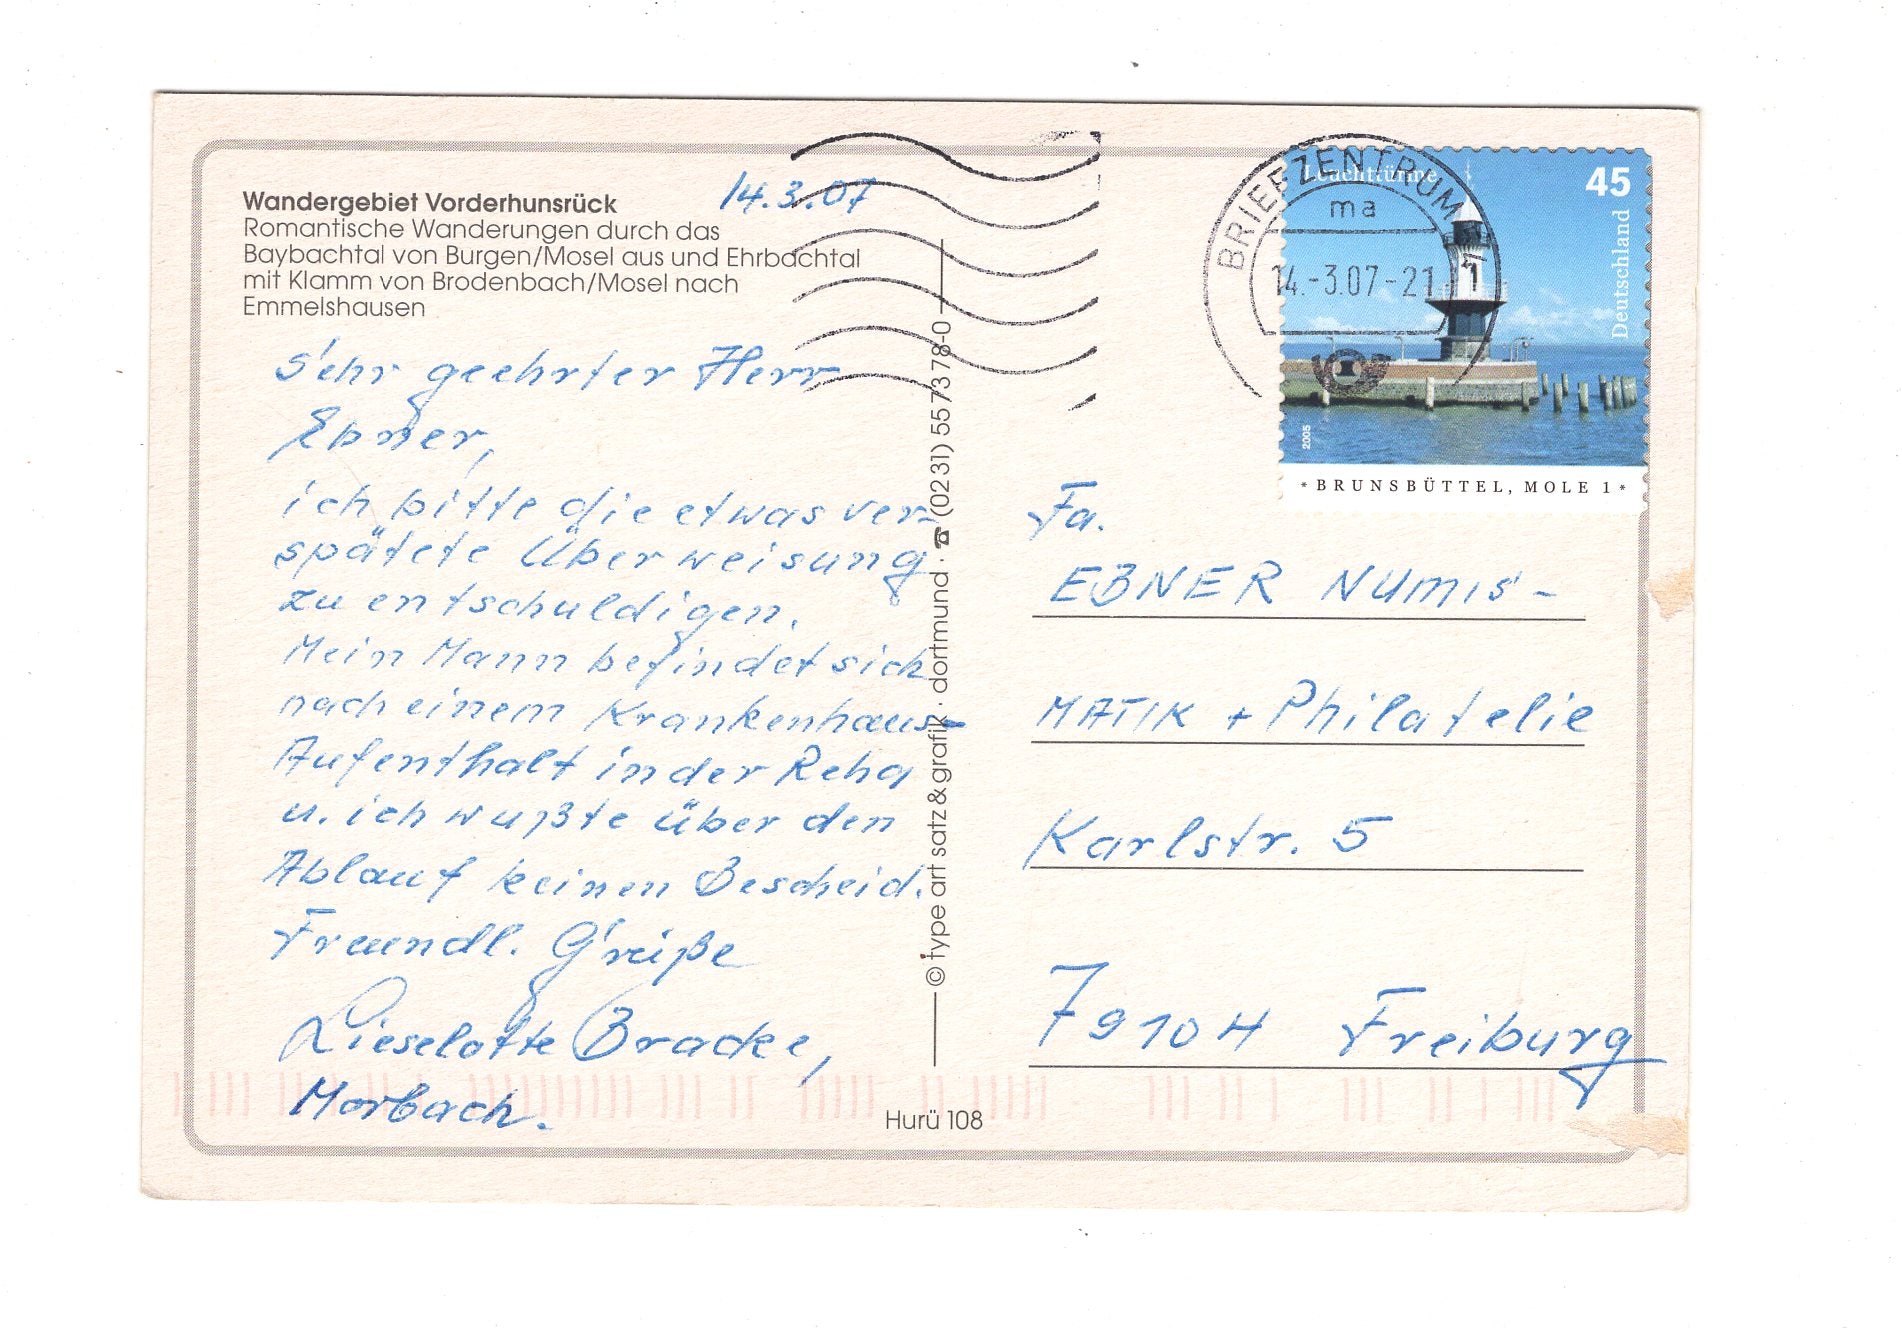 Wandergebiet Vorderhunsrück
Romantische Wanderungen durch das
Baybachtal von Burgen/Mosel aus und Ehrbachtal
mit Klamm von Brodenbach/Mosel nach
Emmelshausen
14.3.07
Sehr geehrter Herr
Ebner,
ich bitte die etwas ver-
spätete Überweisung
zu entschuldigen.
Mein Mann befindet sich
nach einem Krankenhaus-
Aufenthalt in der Reha
u. ich wußte über den
Ablauf keinen Bescheid.
Freundl. Grüße
Lieselotte Bracke,
Morbach.
© type art satz & grafik · dortmund · ☎ (0231) 557378-0
Hurü 108
BRIEFZENTRUM
ma
14.-3.07-21
Leuchttürme
45
Deutschland
2005
* BRUNSBÜTTEL, MOLE 1 *
Fa.
EBNER NUMIS-
MATIK + Philatelie
Karlstr. 5
79104 Freiburg